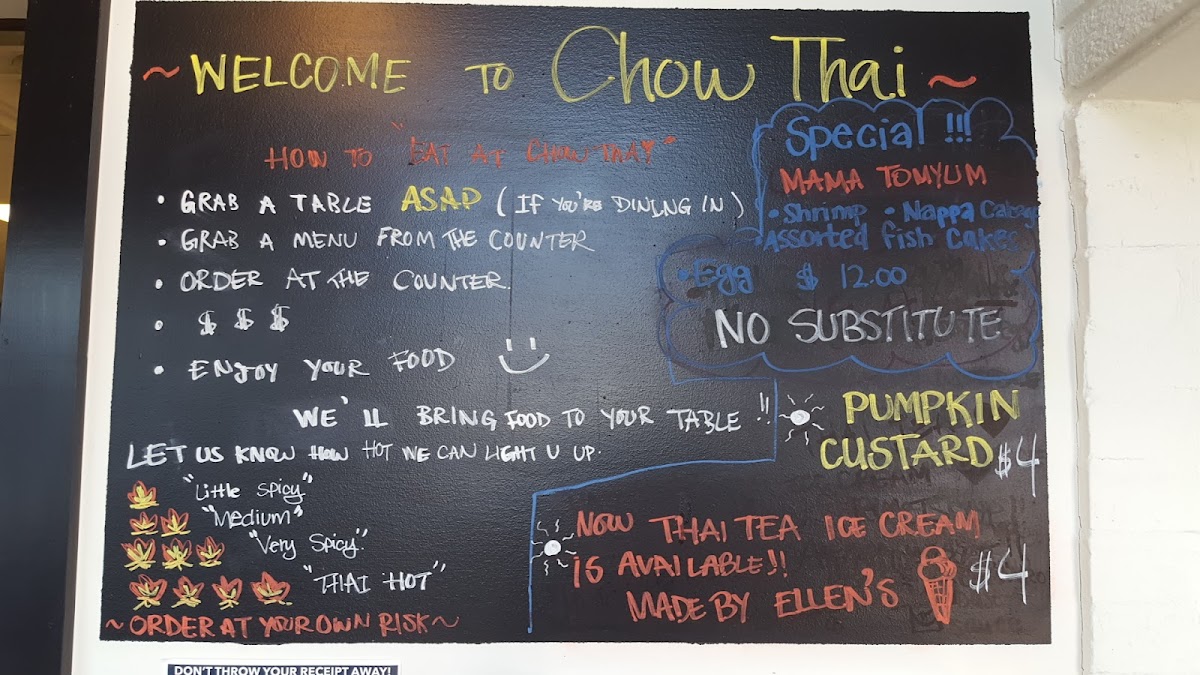 ~ WELCOME TO Chow Thai ~
HOW TO "EAT AT CHOW THAI"
• GRAB A TABLE ASAP (IF YOU'RE DINING IN)
• GRAB A MENU FROM THE COUNTER
• ORDER AT THE COUNTER.
• $ $ $
• ENJOY YOUR FOOD
WE'LL BRING FOOD TO YOUR TABLE !!
LET US KNOW HOW HOT WE CAN LIGHT U UP.
"Little Spicy"
"Medium"
"Very Spicy"
"THAI HOT"
~ ORDER AT YOUR OWN RISK ~
Special !!!
MAMA TOMYUM
• Shrimp • Nappa Cabage
• Assorted fish Cakes
• Egg $ 12.00
NO SUBSTITUTE
PUMPKIN
CUSTARD $4
NOW THAI TEA ICE CREAM
IS AVAILABLE!!
MADE BY ELLEN'S $4
DON'T THROW YOUR RECEIPT AWAY!